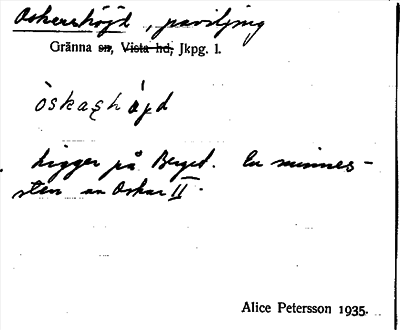 Oskarshöjd, paviljong
Gränna sn, Vista hd, Jkpg. l.
òskashö̀jd
Ligger på Berget. En minnes-
sten av Oskar II.
Alice Petersson 1935.